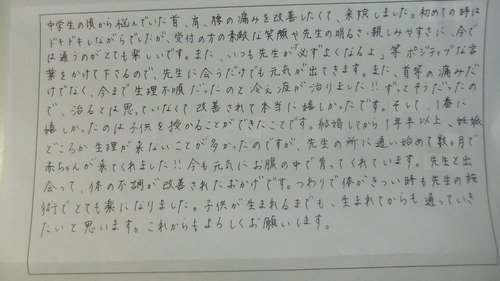 中学生の頃から悩んでいた首、肩、腰の痛みを改善したくて、来院しました。初めての時は
ドキドキしながらでしたが、受付の方の素敵な笑顔や先生の明るさ・親しみやすさに、今で
は通うのがとても楽しいです。また、いつも先生が「必ずよくなるよ」等ポジティブな言
葉をかけて下さるので、先生に会うだけでも元気が出てきます。また、首等の痛みだ
けでなく、今まで生理不順だったのと冷え症が治りました!!ずっとそうだったの
で、治るとは思っていなくて改善されて本当に嬉しかったです。そして、1番に
嬉しかったのは子供を授かることができたことです。結婚してから1年半以上、妊娠
どころか生理が来ないことが多かったのですが、先生の所に通い始めて数ヶ月で
赤ちゃんが来てくれました!!今も元気にお腹の中で育ってくれています。先生と出
会って、体の不調が改善されたおかげです。つわりで体がきつい時も先生の施
術でとても楽になりました。子供が生まれるまでも、生まれてからも通っていき
たいと思います。これからもよろしくお願いします。